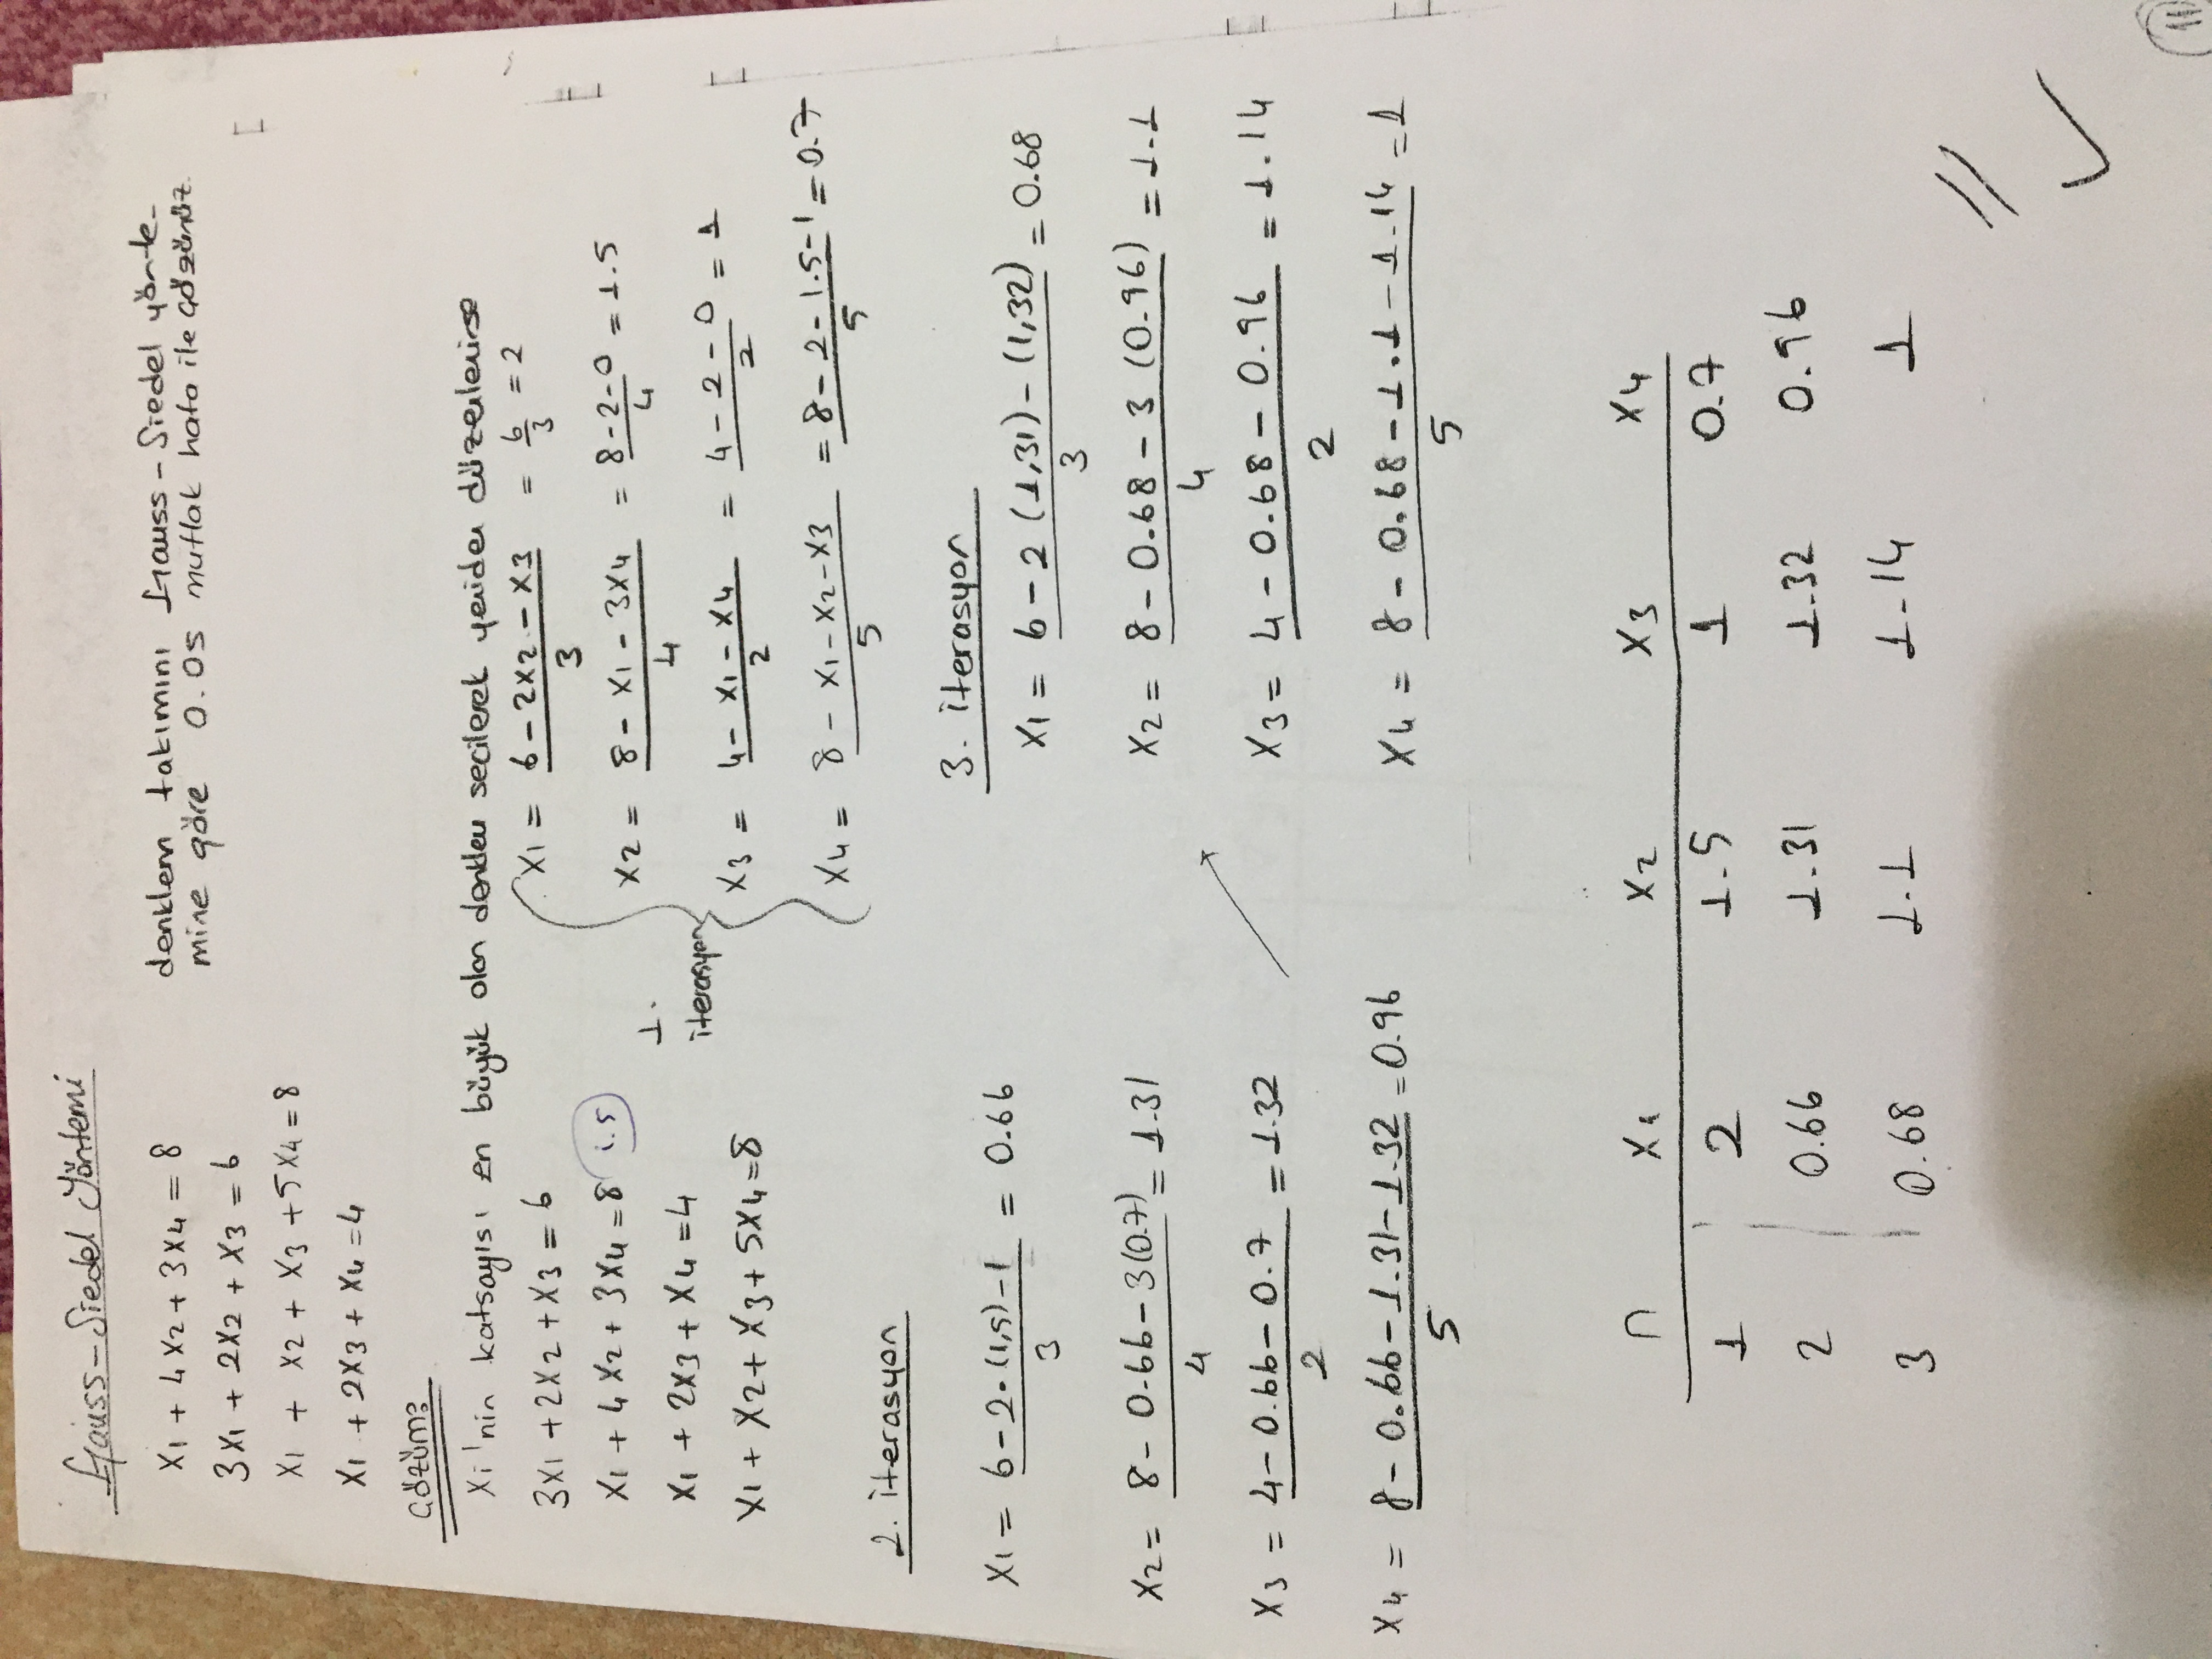 Gauss-Siedel Yöntemi
x1 + 4x2 + 3x4 = 8
3x1 + 2x2 + x3 = 6
x1 + x2 + x3 + 5x4 = 8
x1 + 2x3 + x4 = 4
denklem takımını Gauss-Siedel yönte-
mine göre 0.05 mutlak hata ile çözünüz.
Çözüm:
Xi'nin katsayısı en büyük olan denklem secilerek yeniden düzenlenirse
3x1 + 2x2 + x3 = 6
x1 + 4x2 + 3x4 = 8 1.5
x1 + 2x3 + x4 = 4
x1 + x2 + x3 + 5x4 = 8
1. iterasyon
x1 = (6 - 2x2 - x3)/3 = 6/3 = 2
x2 = (8 - x1 - 3x4)/4 = (8-2-0)/4 = 1.5
x3 = (4 - x1 - x4)/2 = (4-2-0)/2 = 1
x4 = (8 - x1 - x2 - x3)/5 = (8-2-1.5-1)/5 = 0.7
2. iterasyon
x1 = (6-2.(1,5)-1)/3 = 0.66
x2 = (8 - 0.66 - 3(0.7))/4 = 1.31
x3 = (4 - 0.66 - 0.7)/2 = 1.32
x4 = (8 - 0.66 - 1.31 - 1.32)/5 = 0.96
3. iterasyon
x1 = (6 - 2 (1,31) - (1,32))/3 = 0.68
x2 = (8 - 0.68 - 3 (0.96))/4 = 1.1
x3 = (4 - 0.68 - 0.96)/2 = 1.14
x4 = (8 - 0.68 - 1.1 - 1.14)/5 = 1
n x1 x2 x3 x4
1 2 1.5 1 0.7
2 0.66 1.31 1.32 0.96
3 0.68 1.1 1.14 1
11